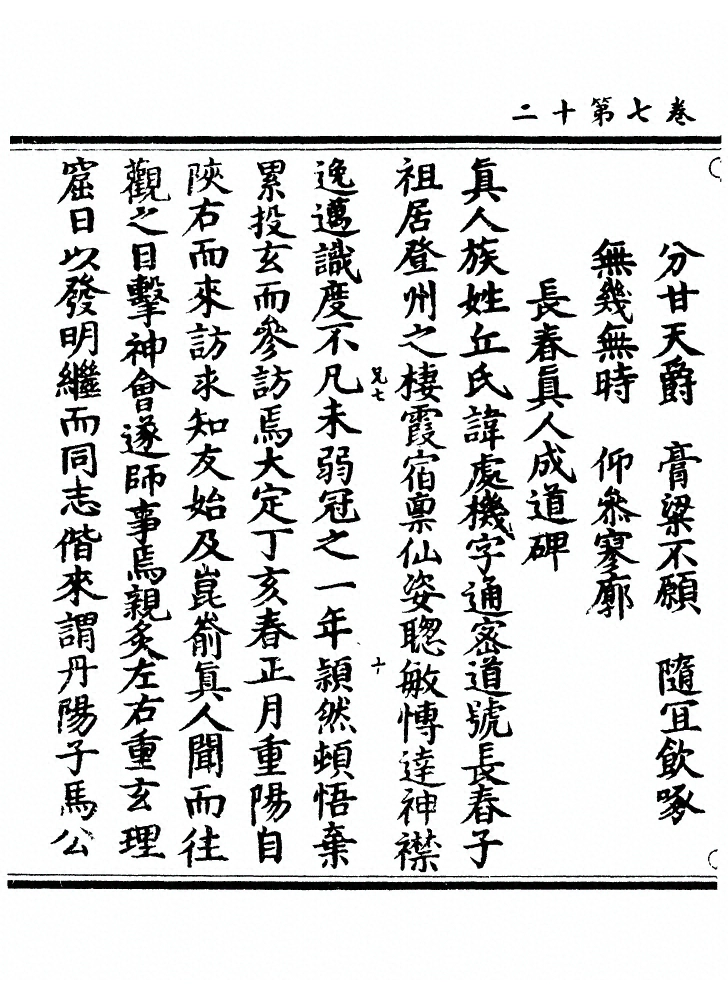 卷七第十二
分甘天爵　膏粱不願　隨冝飲啄
無幾無時　仰叅寥廓
長春眞人成道碑
眞人族姓丘氏諱處機字通密道號長春子
祖居登州之棲霞宿禀仙姿聦敏愽達神襟
逸邁識度不凡未弱冠之一年頴然頓悟棄
兄七
十
累投玄而參訪焉大定丁亥春正月重陽自
陝右而來訪求知友始及崑嵛眞人聞而往
觀之目擊神會遂師事焉親炙左右重玄理
窟日以發明繼而同志偕來謂丹陽子馬公